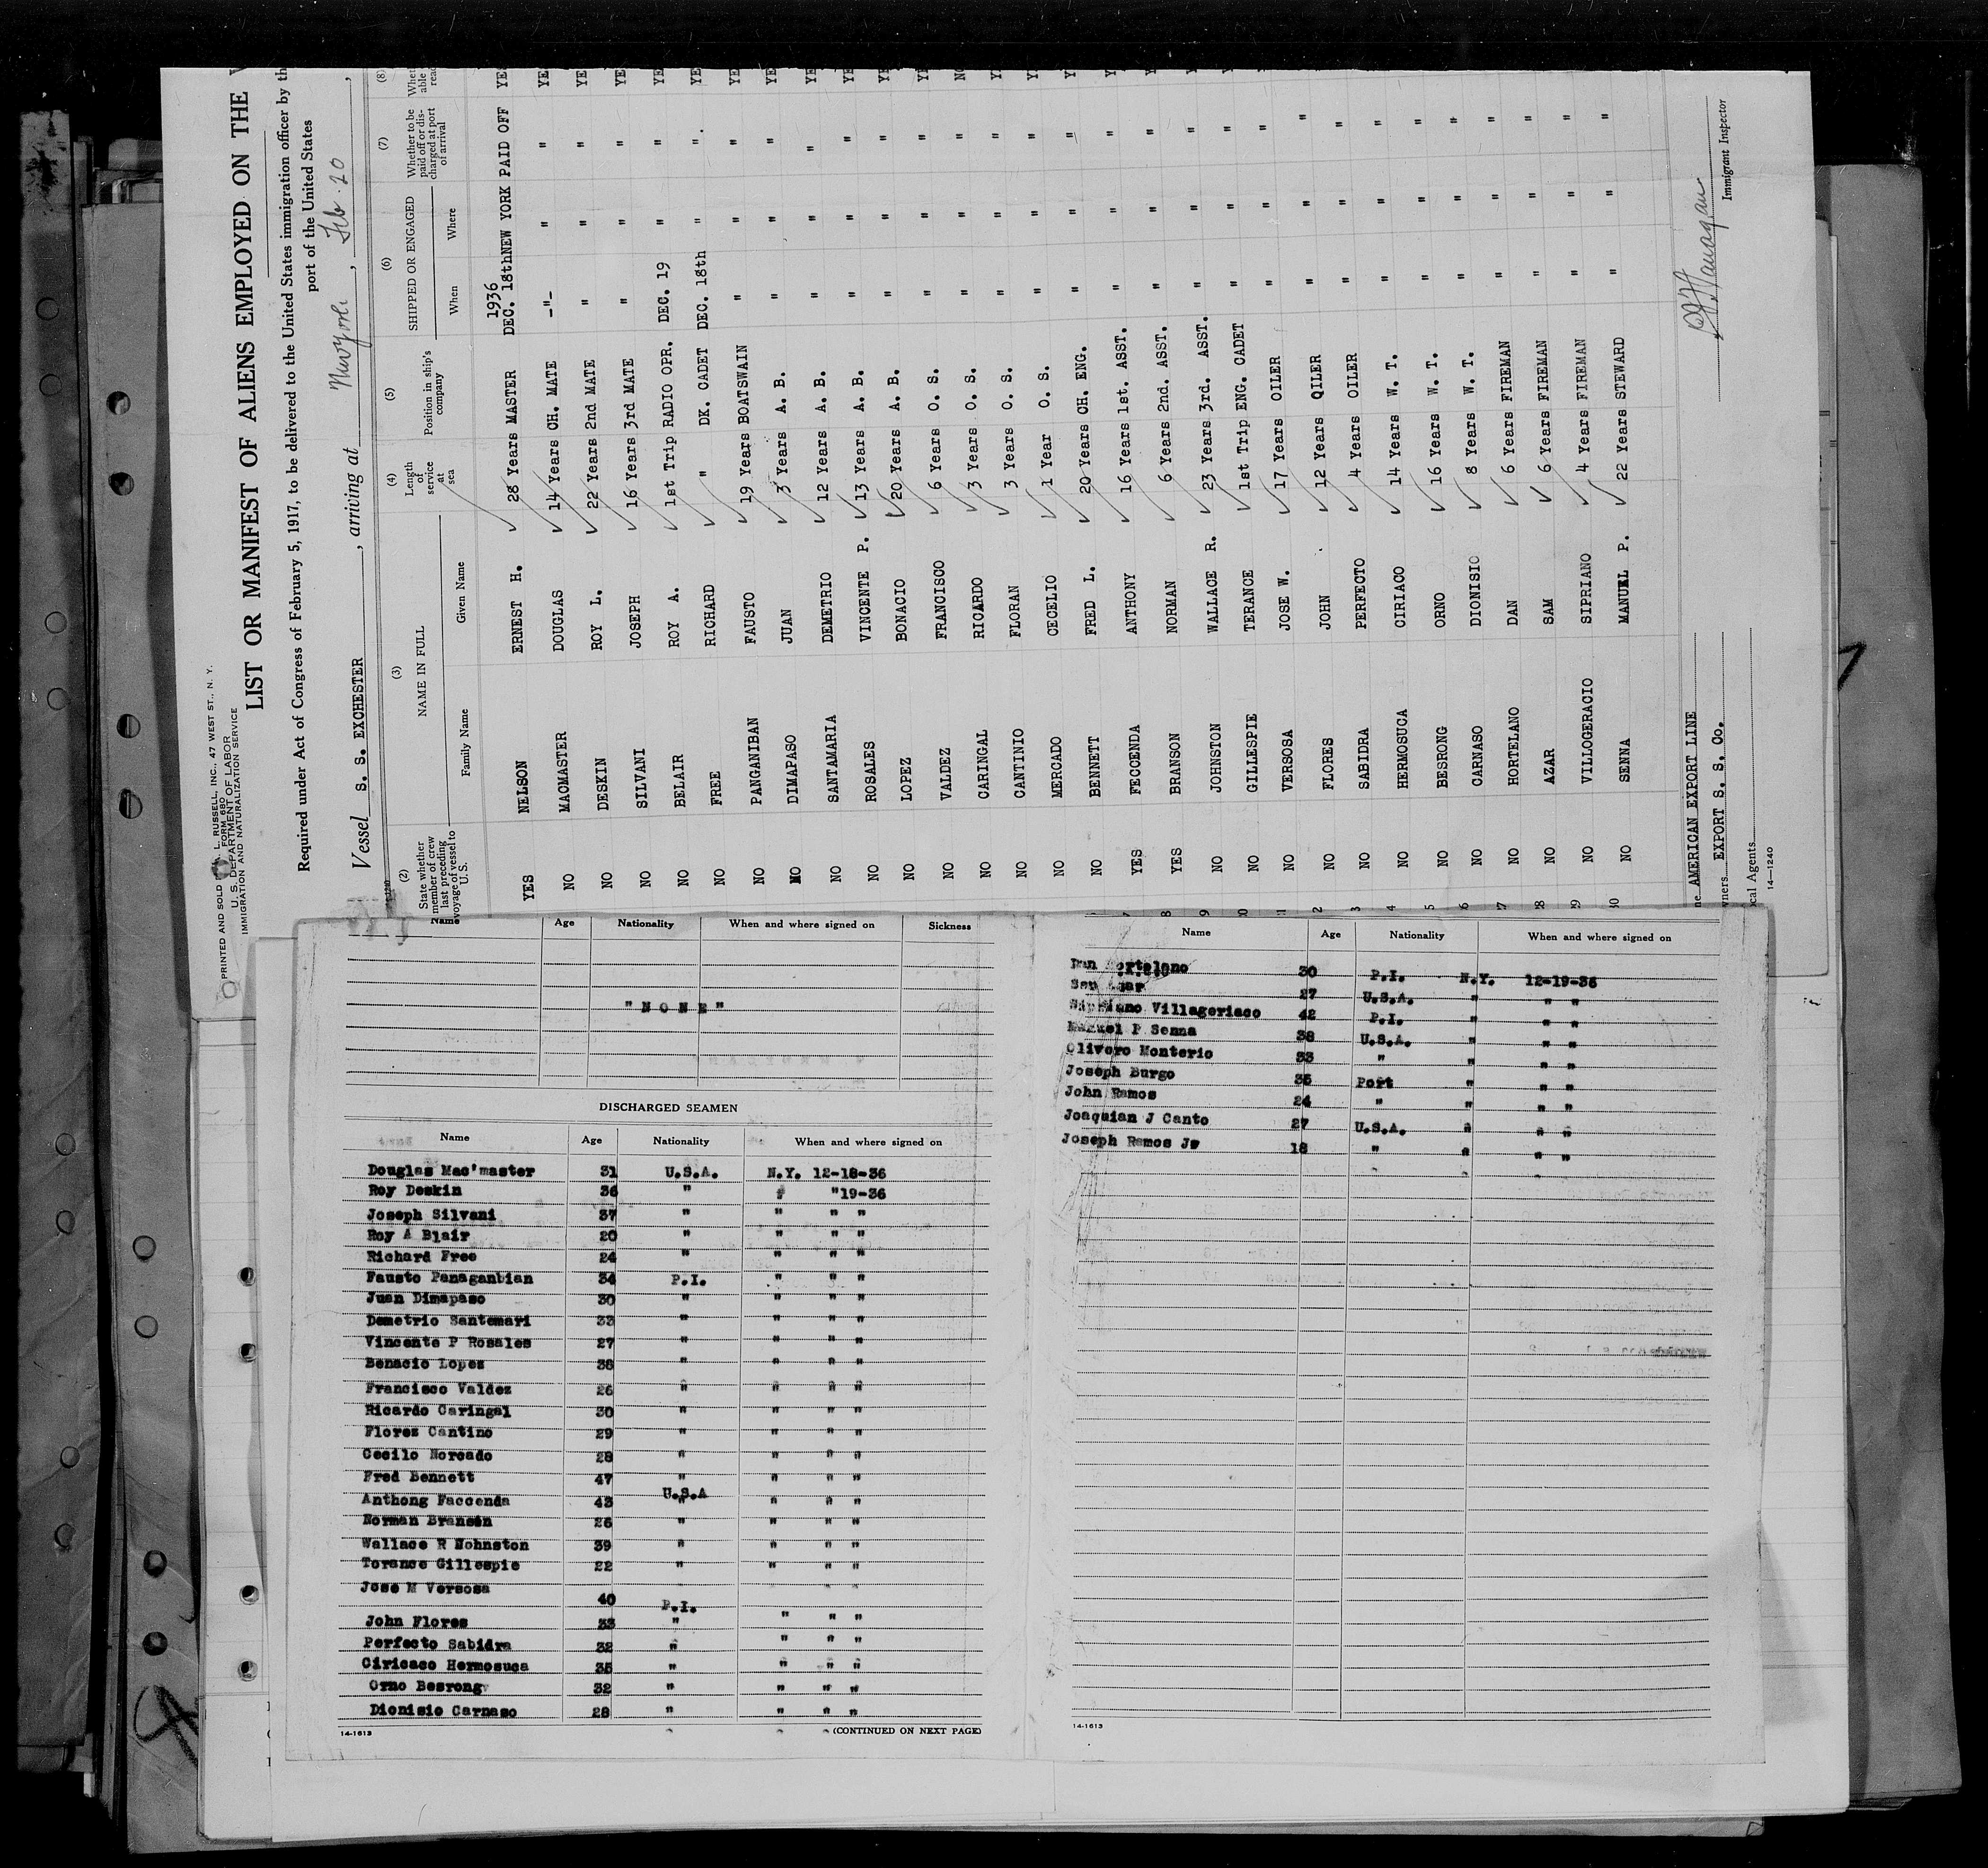 PRINTED AND SOLD L. RUSSELL, INC., 47 WEST ST., N. Y.
FORM 680
U. S. DEPARTMENT OF LABOR
IMMIGRATION AND NATURALIZATION SERVICE
LIST OR MANIFEST OF ALIENS EMPLOYED ON THE
Required under Act of Congress of February 5, 1917, to be delivered to the United States immigration officer by th
port of the United States
Vessel S. S. EXCHESTER, arriving at Newyork, Feb. 20,
(2) (3) (4) (5) (6) (7) (8)
State whether member of crew last preceding voyage of vessel to U. S. NAME IN FULL Family Name Given Name Length of service at sea Position in ship's company SHIPPED OR ENGAGED When Where Whether to be paid off or discharged at port of arrival Whet able read
YES NELSON ERNEST H. 28 Years MASTER 1936 DEC. 18th NEW YORK PAID OFF YES
NO MACMASTER DOUGLAS 14 Years CH. MATE -"- " " YE
NO DESKIN ROY L. 22 Years 2nd MATE " " " YE
NO SILVANI JOSEPH 16 Years 3rd MATE " " " YE
NO BELAIR ROY A. 1st Trip RADIO OPR. DEC. 19 " " YE
NO FREE RICHARD " DK. CADET DEC. 18th " " YE
NO PANGANIBAN FAUSTO 19 Years BOATSWAIN " " " YE
NO DIMAPASO JUAN 3 Years A. B. " " " YE
NO SANTAMARIA DEMETRIO 12 Years A. B. " " " YE
NO ROSALES VINCENTE P. 13 Years A. B. " " " YE
NO LOPEZ BONACIO 20 Years A. B. " " " YE
NO VALDEZ FRANCISCO 6 Years O. S. " " " YE
NO CARINGAL RICARDO 3 Years O. S. " " " NO
NO CANTINIO FLORAN 3 Years O. S. " " " Y
NO MERCADO CECELIO 1 Year O. S. " " " Y
NO BENNETT FRED L. 20 Years CH. ENG. " " " Y
7 YES FECCENDA ANTHONY 16 Years 1st. ASST. " " " Y
8 YES BRANSON NORMAN 6 Years 2nd. ASST. " " " Y
9 NO JOHNSTON WALLACE R. 23 Years 3rd. ASST. " " "
0 NO GILLESPIE TERANCE 1st Trip ENG. CADET " " "
1 NO VERSOSA JOSE W. 17 Years OILER " " "
2 NO FLORES JOHN 12 Years OILER " " "
3 NO SABIDRA PERFECTO 4 Years OILER " " "
4 NO HERMOSUCA CIRIACO 14 Years W. T. " " "
5 NO BESRONG ORNO 16 Years W. T. " " "
6 NO CARNASO DIONISIO 8 Years W. T. " " "
7 NO HORTELANO DAN 6 Years FIREMAN " " "
8 NO AZAR SAM 6 Years FIREMAN " " "
9 NO VILLOGERACIO SIPRIANO 4 Years FIREMAN " " "
0 NO SENNA MANUEL P. 22 Years STEWARD " " "
ne AMERICAN EXPORT LINE
wners EXPORT S. S. Co.
cal Agents
14-1240
Immigrant Inspector
Name Age Nationality When and where signed on Sickness
"NONE"
DISCHARGED SEAMEN
Name Age Nationality When and where signed on
Douglas Mac'master 31 U.S.A. N.Y. 12-18-36
Roy Deskin 36 " " "19-36
Joseph Silvani 37 " " " "
Roy A Blair 20 " " " "
Richard Free 24 " " " "
Fausto Panaganbian 34 P.I. " " "
Juan Dimapaso 30 " " " "
Demetrio Santemari 33 " " " "
Vincente P Rosales 27 " " " "
Benacio Lopez 38 " " " "
Francisco Valdez 26 " " " "
Ricardo Caringal 30 " " " "
Florez Cantino 29 " " " "
Cecilo Morcado 28 " " " "
Fred Bennett 47 " " " "
U.S.A
Anthong Faccenda 43 " " " "
Norman Bransen 26 " " " "
Wallace R Nohnston 39 " " " "
Torance Gillespie 22 " " " "
Jose M Versosa 40 P.I.
John Flores 33 " " " "
Perfecto Sabidra 32 " " " "
Ciricaco Hermosuca 35 " " " "
Orno Besrong 32 " " " "
Dionisio Carnaso 28 " " " "
14-1613 (CONTINUED ON NEXT PAGE)
Name Age Nationality When and where signed on
Dan ortelano 30 P.I. N.Y. 12-19-36
27 U.S.A. " " "
Villageriaco 42 P.I. " " "
Manuel P Senna 38 U.S.A. " " "
Olivero Monterio 33 " " " "
Joseph Burgo 35 Port " " "
John Ramos 24 " " " "
Joaquian J Canto 27 U.S.A. " " "
Joseph Ramos Jr 18 " " " "
14-1613